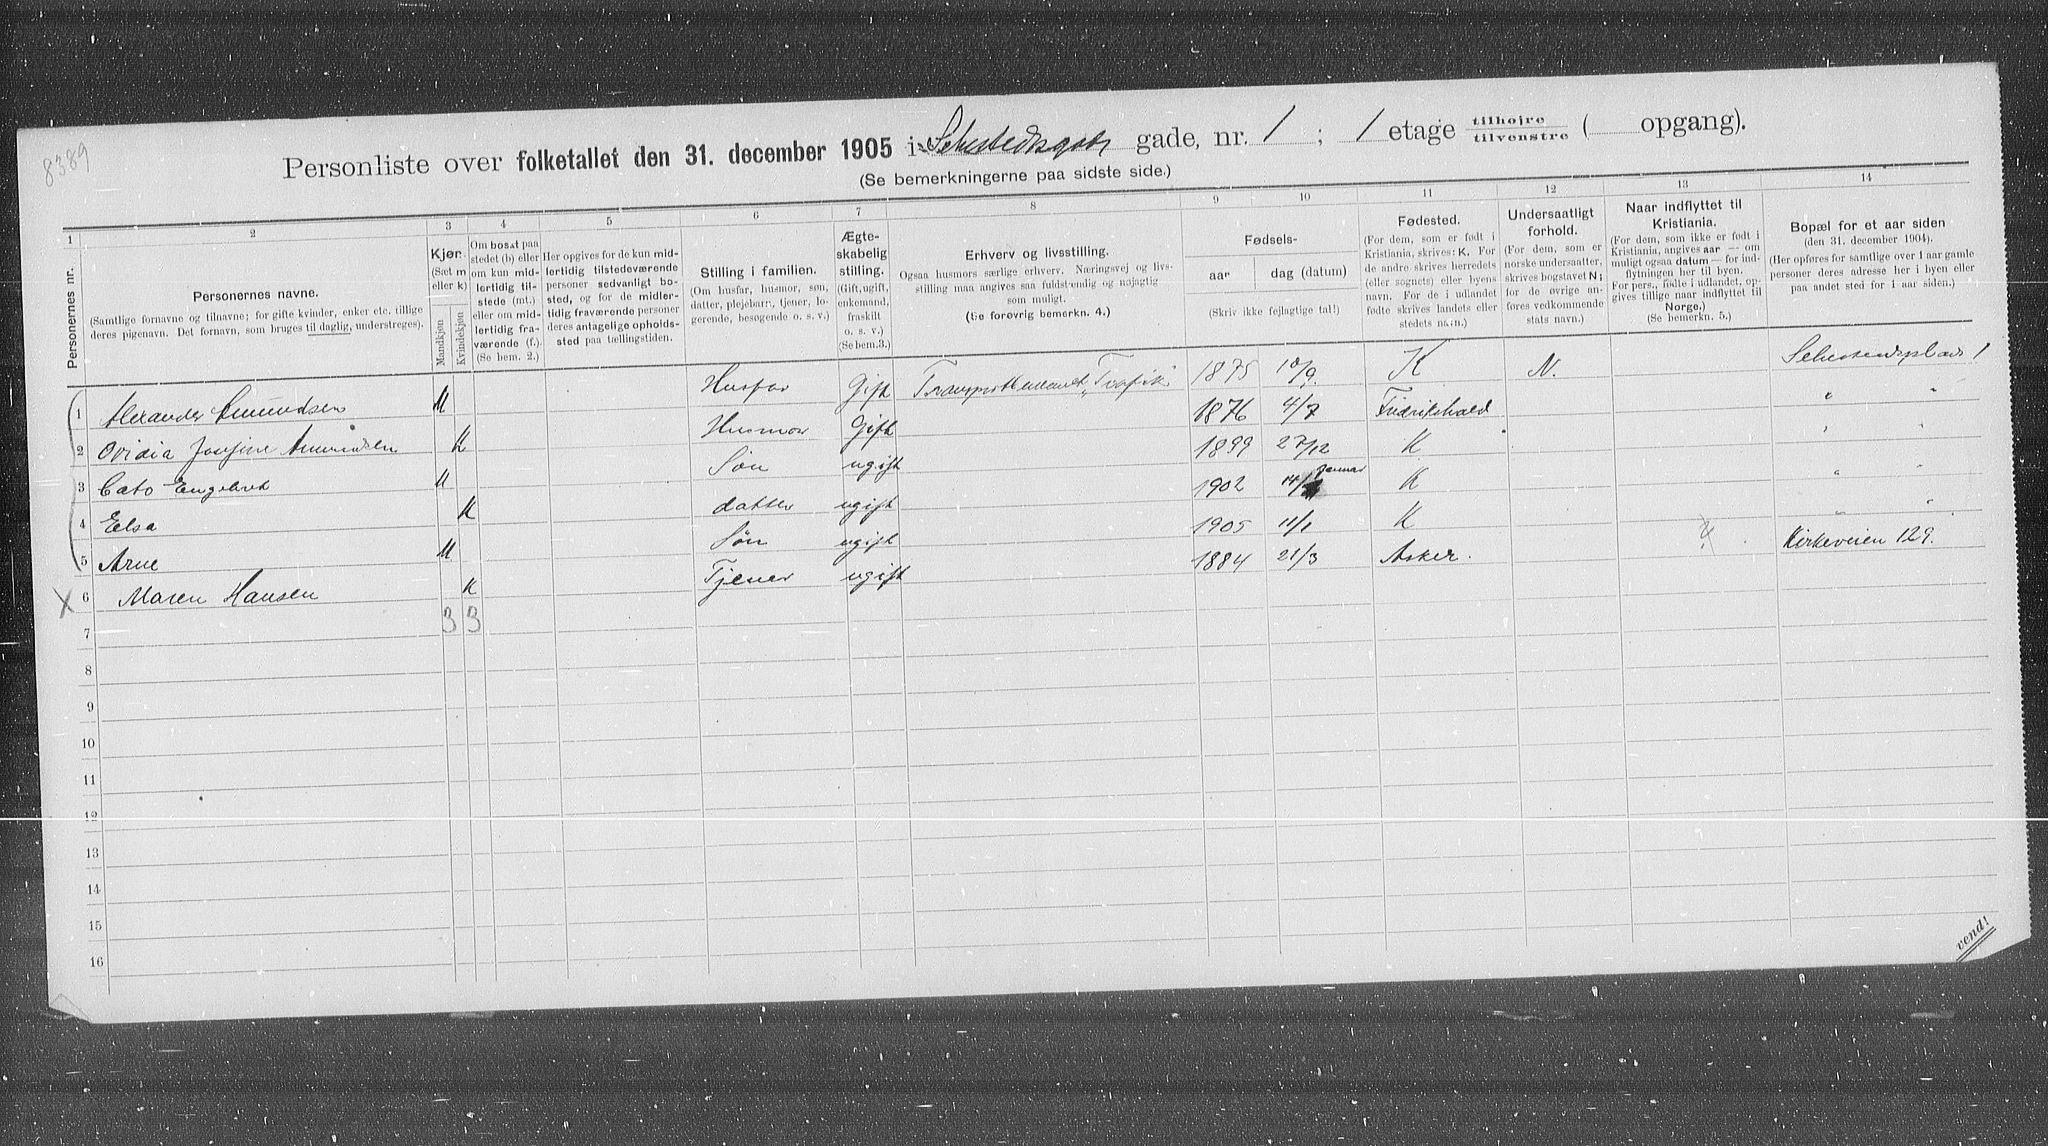 8389
Personliste over folketallet den 31. december 1905 i Sehestedsgade gade, nr. 1; 1 etage tilhøjre tilvenstre ( opgang).
(Se bemerkningerne paa sidste side.)
1 2 3 4 5 6 7 8 9 10 11 12 13 14
Personernes nr.
Personernes navne.
(Samtlige fornavne og tilnavne; for gifte kvinder, enker etc. tillige deres pigenavn. Det fornavn, som bruges til daglig, understreges).
Kjøn.
(Sæt m eller k)
Mandkjøn
Kvindekjøn
Om bosat paa stedet (b) eller om kun midlertidig tilstede (mt.) eller om midlertidig fraværende (f.) (Se bem. 2.)
Her opgives for de kun midlertidig tilstedeværende personer sedvanligt bosted, og for de midlertidig fraværende personer deres antagelige opholdssted paa tællingstiden.
Stilling i familien.
(Om husfar, husmor, søn, datter, plejebarn, tjener, logerende, besøgende o. s. v.)
Ægteskabelig stilling.
(Gift, ugift, enkemand, fraskilt o. s. v.)
(Se bem.3.)
Erhverv og livsstilling.
Ogsaa husmors særlige erhverv. Næringsvej og livsstilling maa angives saa fuldstændig og nøjagtig som muligt.
(Se forøvrig bemerkn. 4.)
Fødsels-
aar
dag (datum)
(Skriv ikke fejlagtige tal!)
Fødested.
(For dem, som er født i Kristiania, skrives: K. For de andre skrives herredets (eller sognets) eller byens navn. For de i udlandet fødte skrives landets eller stedets navn.)
Undersaatligt forhold.
(For dem, som er norske undersaatter, skrives bogstavet N; for de øvrige anføres vedkommende stats navn.)
Naar indflyttet til Kristiania.
(For dem, som ikke er født i Kristiania, angives aar — om muligt ogsaa datum — for indflytningen her til byen. For pers., fødte i udlandet, opgives tillige naar indflyttet til Norge.)
(Se bemerkn. 5.)
Bopæl for et aar siden
(den 31. december 1904).
(Her opføres for samtlige over 1 aar gamle personer deres adresse her i byen eller paa andet sted for 1 aar siden.)
1 Alexander Amundsen M Husfar Gift 1875 10/9. K N. Sehestedsplads 1
2 Ovidia Josefine Amundsen K Husmor Gift 1876 4/7 Fredrikshald " "
3 Cato Engebret M Søn ugift 1899 27/12 K " "
4 Elsa K datter ugift 1902 14/ Januar K " "
5 Arne M Søn ugift 1905 11/1 K " "
X 6 Maren Hansen K Tjener ugift 1884 21/3 Asker. Kirkeveien 129.
7 3 3
8
9
10
11
12
13
14
15
16
vend!